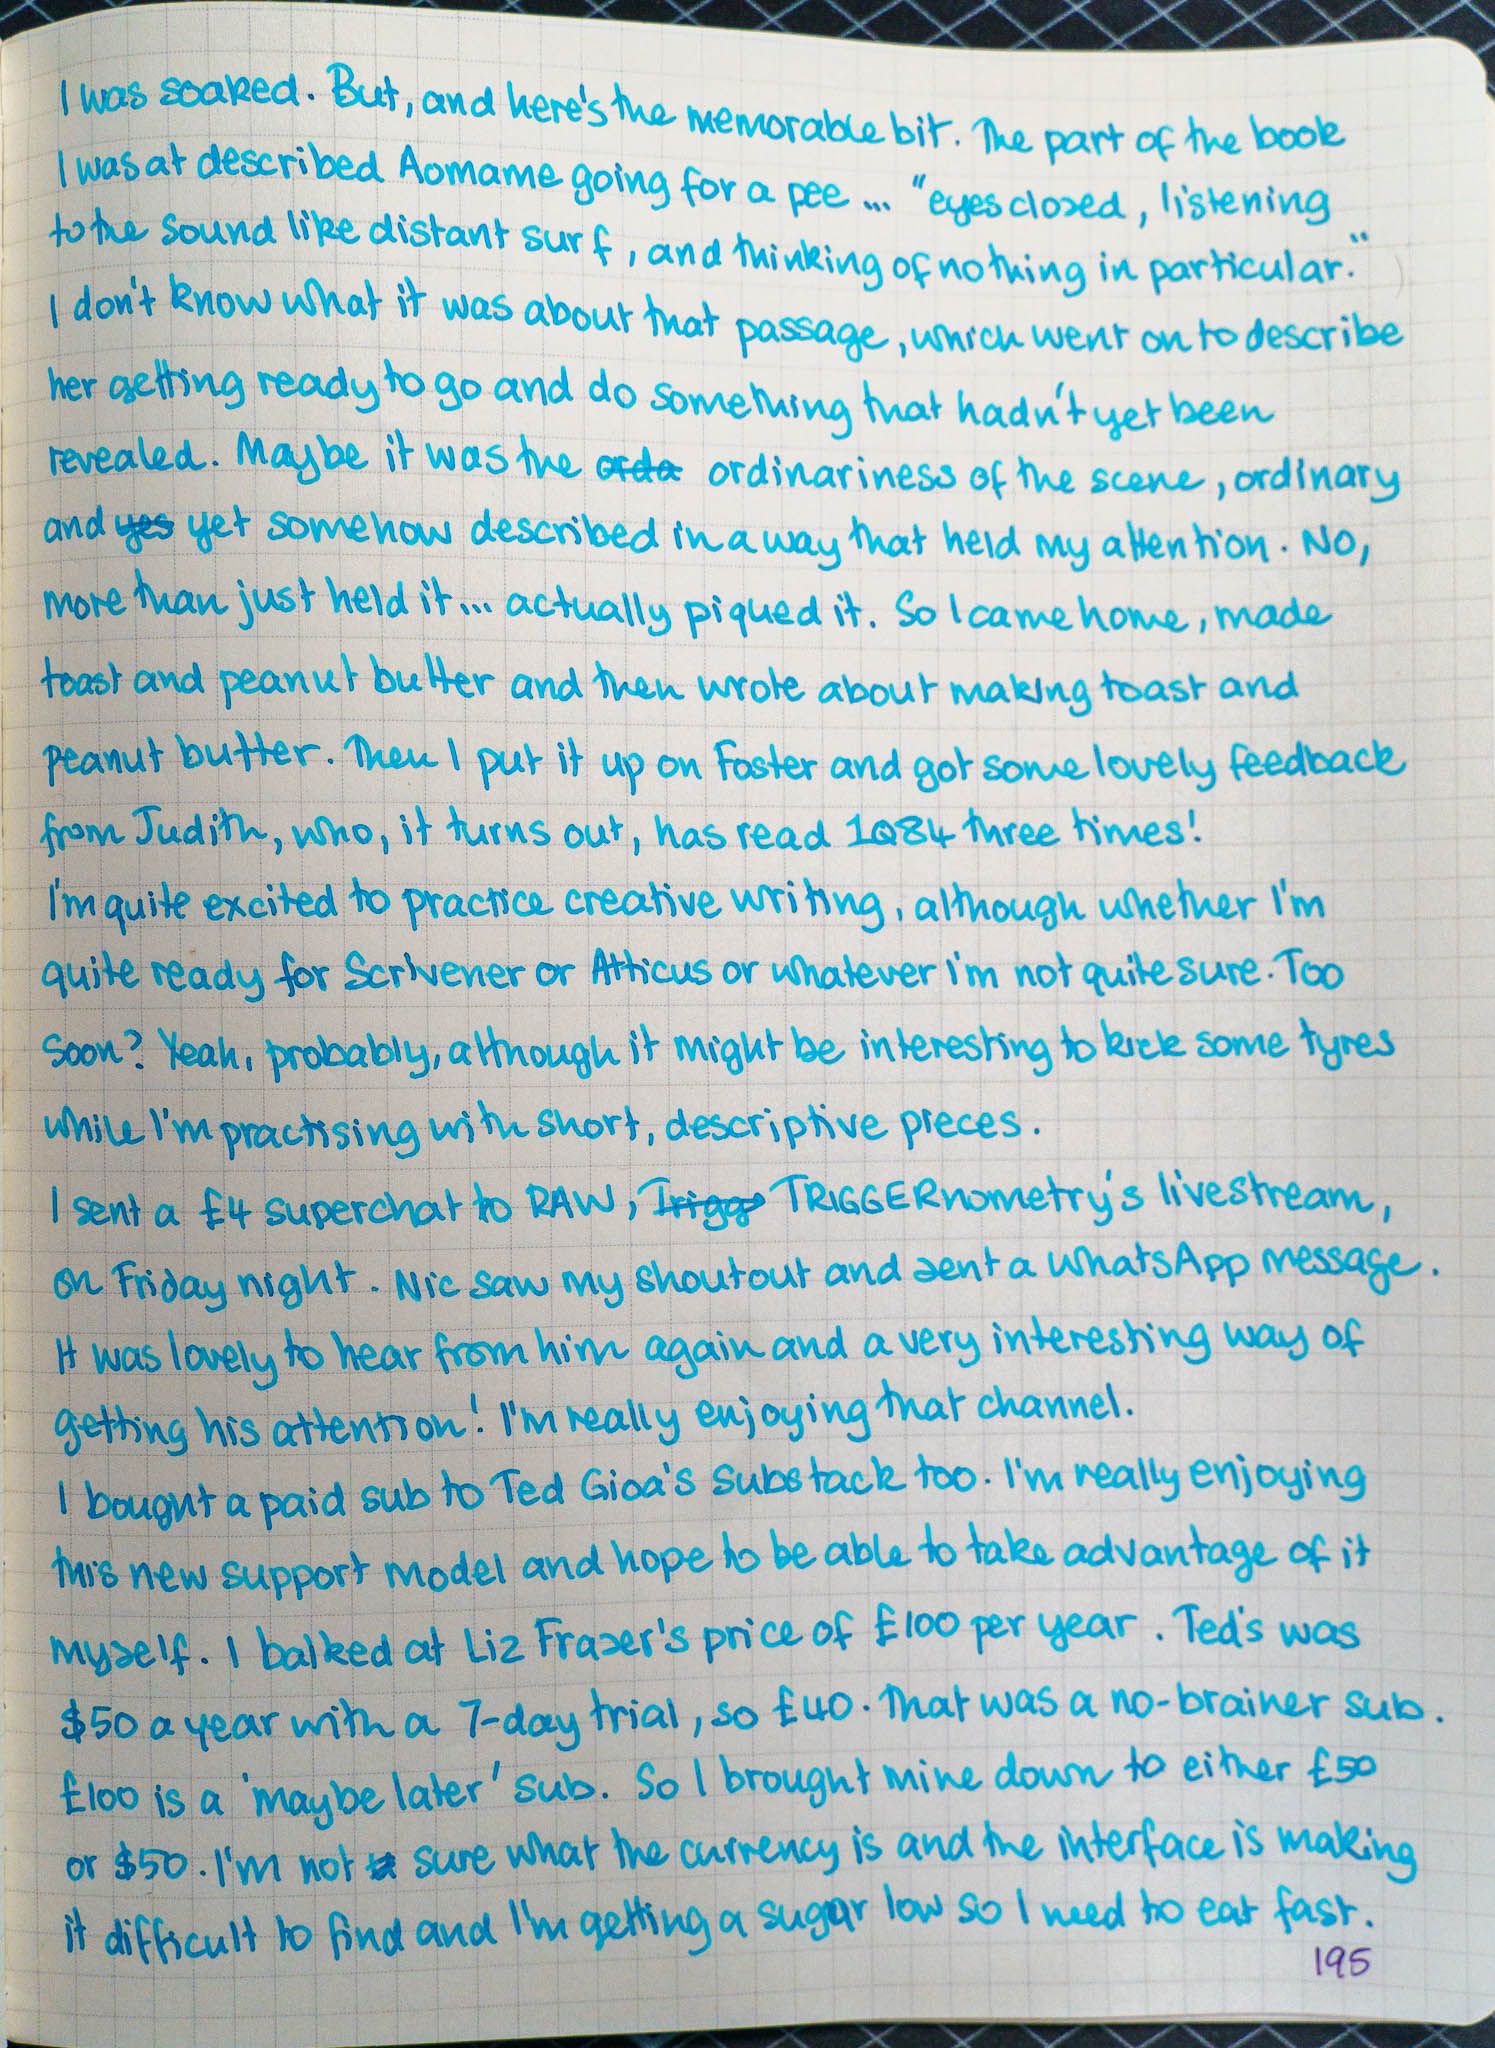 I was soaked. But, and here's the memorable bit. The part of the book
I was at described Aomame going for a pee... "eyes closed, listening
to the sound like distant surf, and thinking of nothing in particular."
I don't know what it was about that passage, which went on to describe
her getting ready to go and do something that hadn't yet been
revealed. Maybe it was the orda ordinariness of the scene, ordinary
and yes yet somehow described in a way that held my attention. No,
more than just held it... actually piqued it. So I came home, made
toast and peanut butter and then wrote about making toast and
peanut butter. Then I put it up on Foster and got some lovely feedback
from Judith, who, it turns out, has read 1Q84 three times!
I'm quite excited to practice creative writing, although whether I'm
quite ready for Scrivener or Atticus or whatever I'm not quite sure. Too
soon? Yeah, probably, although it might be interesting to kick some tyres
while I'm practising with short, descriptive pieces.
I sent a £4 superchat to RAW, Trigg TRIGGERnometry's livestream,
on Friday night. Nic saw my shoutout and sent a WhatsApp message.
It was lovely to hear from him again and a very interesting way of
getting his attention! I'm really enjoying that channel.
I bought a paid sub to Ted Gioa's Substack too. I'm really enjoying
this new support model and hope to be able to take advantage of it
myself. I balked at Liz Fraser's price of £100 per year. Ted's was
$50 a year with a 7-day trial, so £40. That was a no-brainer sub.
£100 is a 'maybe later' sub. So I brought mine down to either £50
or $50. I'm not sure what the currency is and the interface is making
it difficult to find and I'm getting a sugar low so I need to eat fast.
195